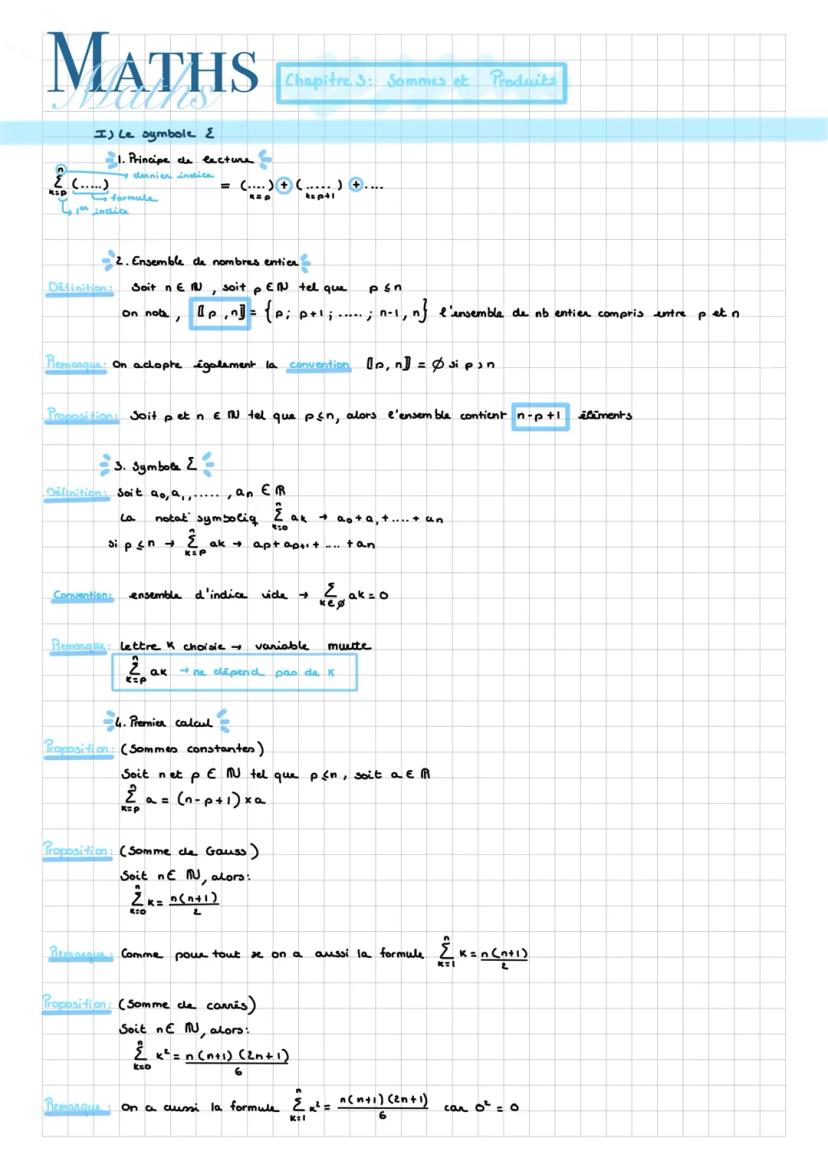 MATHS
Maths
Chapitre 3: Sommes et Produits
I) Le symbole Σ
1. Principe de lecture
n → dernier indice
Σ (.....) = (....) + (.....) + ....
k=p k=p k=p+1
→ formule
↳ 1er indice
2. Ensemble de nombres entier
Définition: Soit n ∈ ℕ, soit p ∈ ℕ tel que p ≤ n
on note, ⟦p, n⟧ = {p; p+1; .....; n-1, n} l'ensemble de nb entier compris entre p et n
Remarque: On adopte également la convention ⟦p, n⟧ = ∅ si p > n
Proposition: Soit p et n ∈ ℕ tel que p ≤ n, alors l'ensemble contient n-p+1 éléments
3. Symbole Σ
Définition: Soit a₀, a₁, ....., an ∈ ℝ
La notat° symboliq Σ_{k=0}^{n} ak → a₀ + a₁ + .... + an
si p ≤ n → Σ_{k=p}^{n} ak → ap + ap+1 + .... + an
Convention: ensemble d'indice vide → Σ_{k∈∅} ak = 0
Remarque: Lettre K choisie → variable muette
Σ_{k=p}^{n} ak → ne dépend pas de K
4. Premier calcul
Proposition: (Sommes constantes)
Soit n et p ∈ ℕ tel que p ≤ n, soit a ∈ ℝ
Σ_{k=p}^{n} a = (n-p+1) × a
Proposition: (Somme de Gauss)
Soit n ∈ ℕ, alors:
Σ_{k=0}^{n} k = n(n+1)/2
Remarque: Comme pour tout x on a aussi la formule Σ_{k=1}^{n} k = n(n+1)/2
Proposition: (Somme de carrés)
Soit n ∈ ℕ, alors:
Σ_{k=0}^{n} k² = n(n+1)(2n+1)/6
Remarque: On a aussi la formule Σ_{k=1}^{n} k² = n(n+1)(2n+1)/6 car 0² = 0